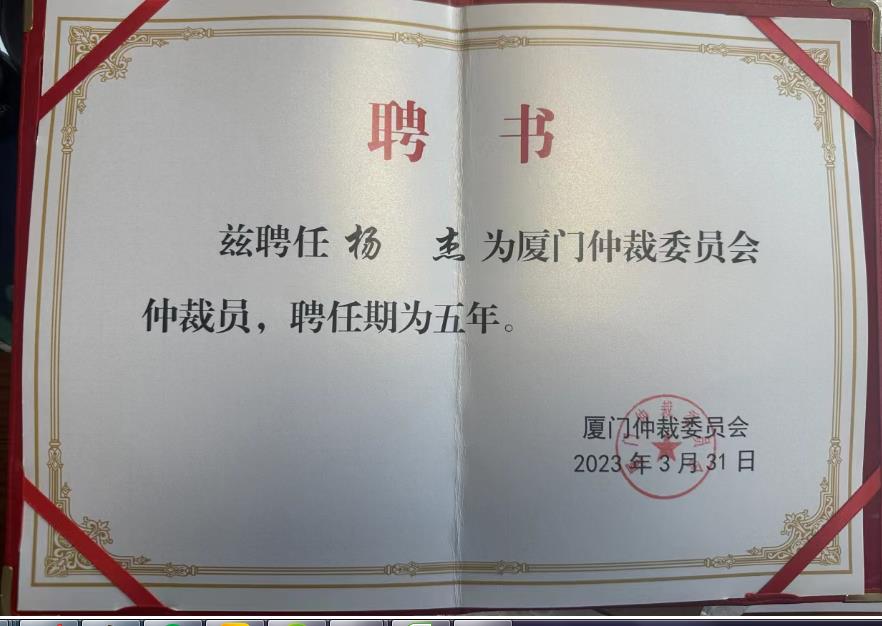 聘 书
兹聘任 杨 杰 为厦门仲裁委员会
仲裁员，聘任期为五年。
厦门仲裁委员会
2023 年 3 月 31 日